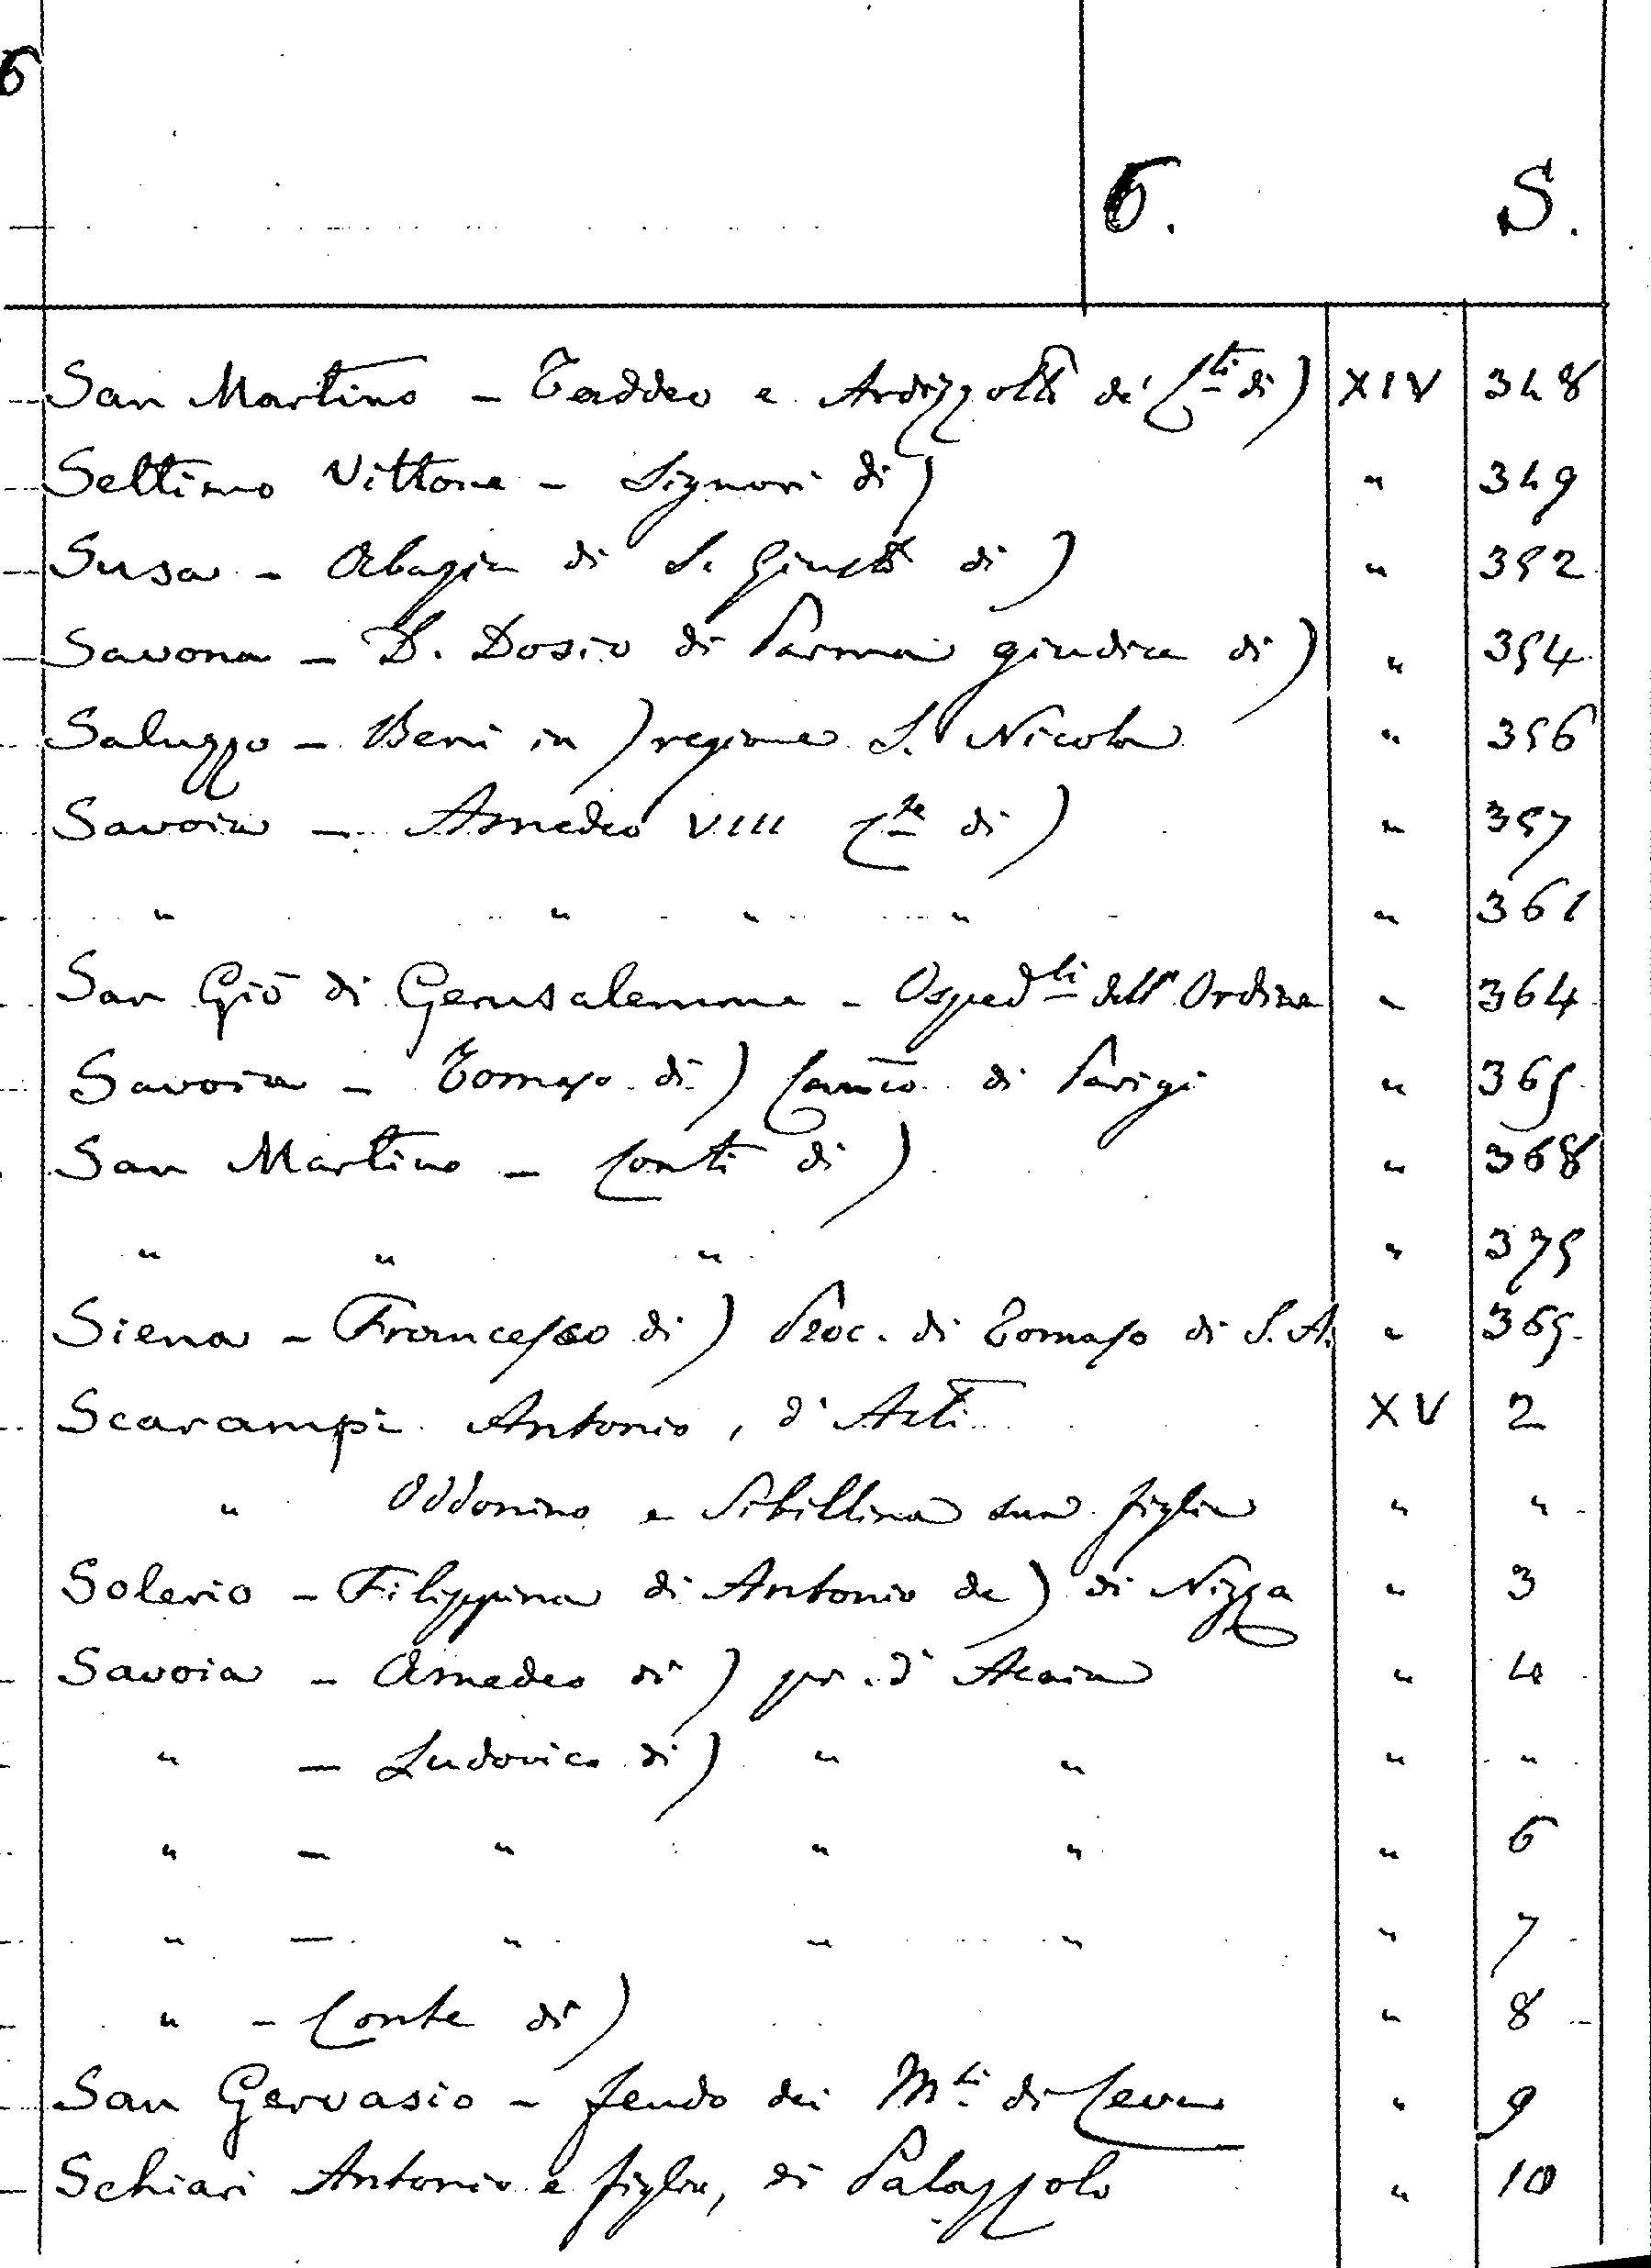 6
6. S.
San Martino - Taddeo e Ardizzotto de' Cti di) XIV 348
Settimo Vittone - Signori di) " 349
Susa - Abazia di S. Giusto di) " 352
Savona - D. Dosio di Parma giudice di) " 354
Saluzzo - Beni in) regione S. Nicola " 356
Savoia - Amedeo VIII Cte di) " 357
" " " " " 361
San Giō di Gerusalemme - Ospedli dell' Ordine " 364
Savoia - Tomaso di) Canco di Parigi " 365
San Martino - Conti di) " 368
" " " " 375
Siena - Francesco di) Proc. di Tomaso di S. A. " 365
Scarampi Antonio, d'Asti XV 2
" Oddonino e Sibillina sua figlia " "
Solerio - Filippina di Antonio de) di Nizza " 3
Savoia - Amedeo di) pr. d'Acaia " 4
" - Ludovico di) " " " "
" - " " " " 6
" - " " " " 7
" - Conte di) " 8
San Gervasio - feudo dei Mti di Ceva " 9
Schiari Antonio e figlia, di Palazzolo " 10